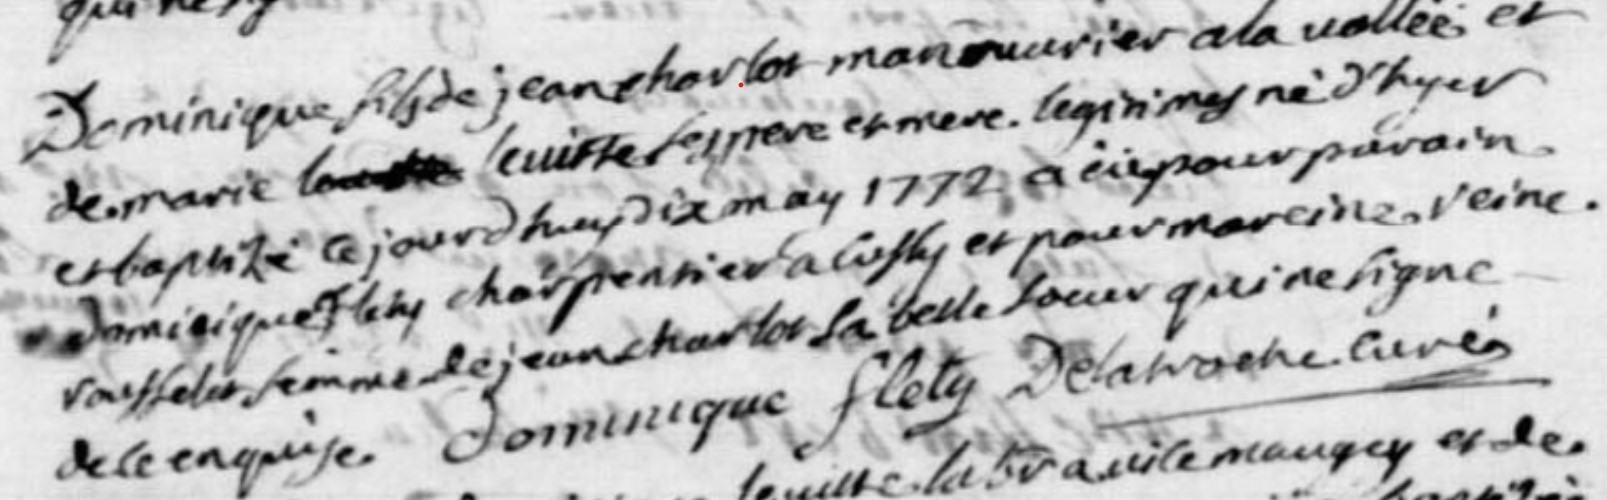 Dominique fils de jean charlot manouvrier a la vallée et
de marie leuitte ses pere et mere. legitimes né d'hyer
et baptizé ce jourdhuy dix may 1772 a eü pour parain
dominique flety charpentier a cossy et pour mareine reine
rousselot femme de jean charlot sa belle soeur qui ne signe
de ce enquise. Dominique flety Delaroche curé
leuitte mangey et de